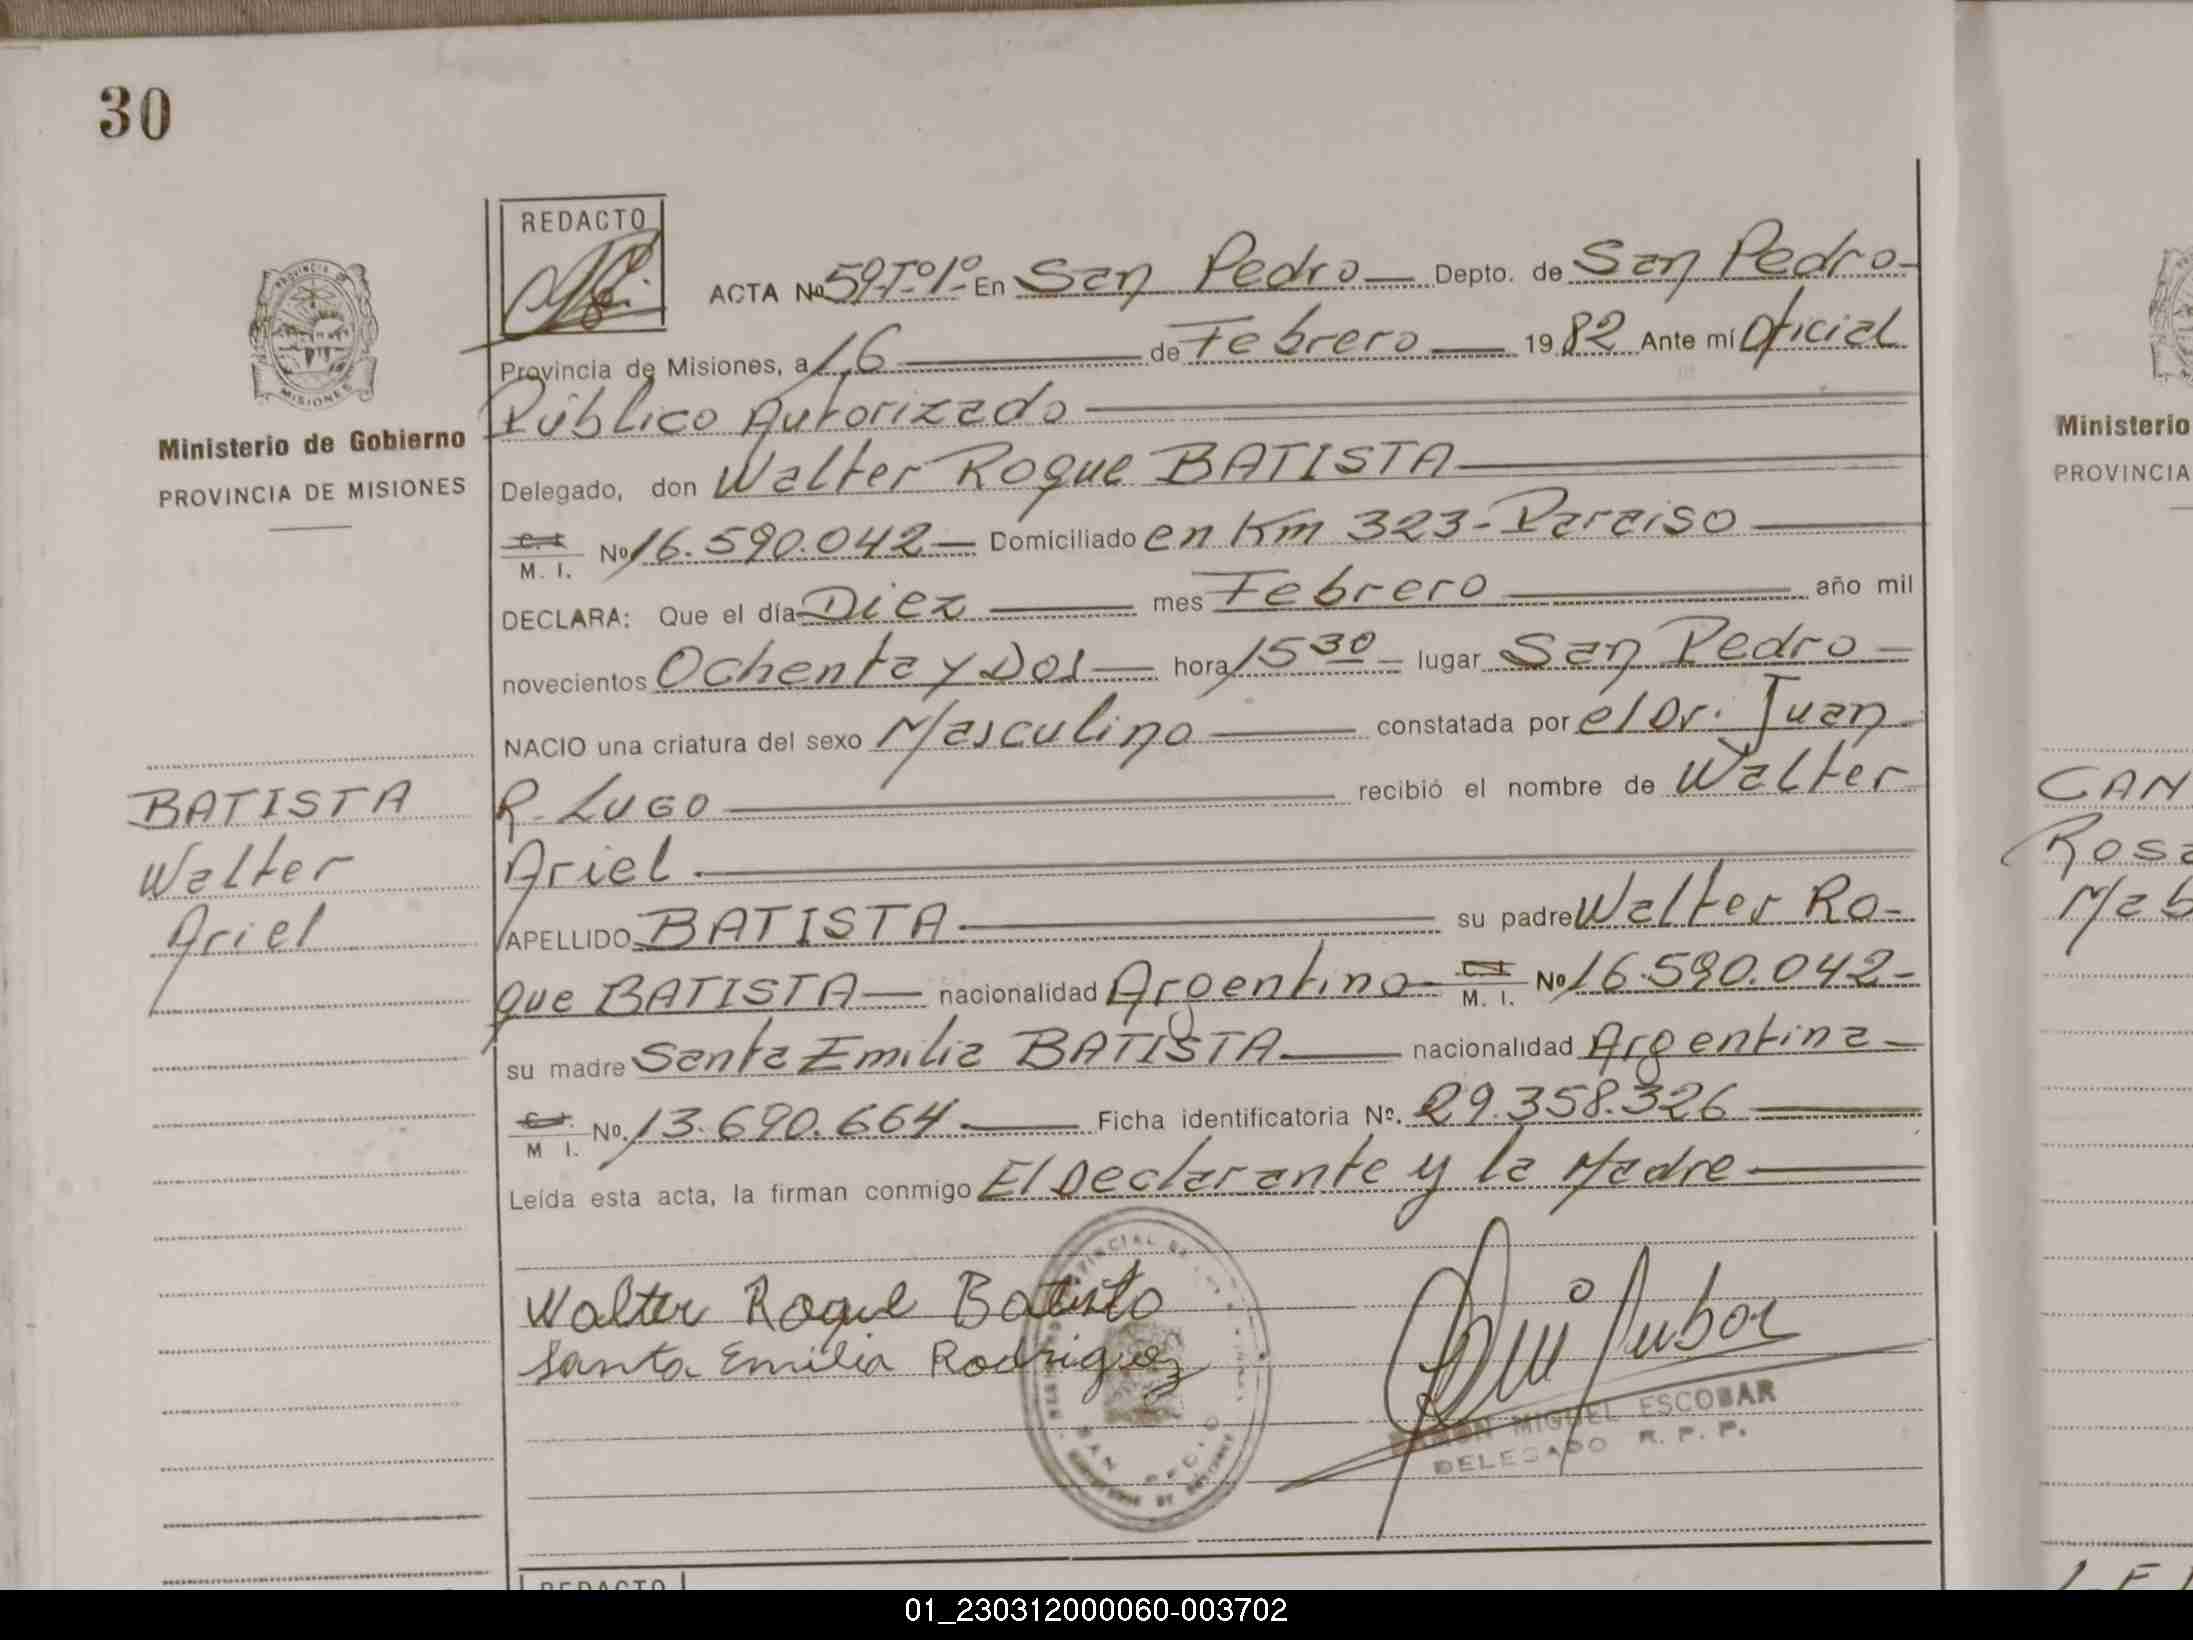 30
REDACTO
PROVINCIA DE
MISIONES
Ministerio de Gobierno
PROVINCIA DE MISIONES
BATISTA
Walter
Ariel
ACTA Nº 59-Tº1º- En San Pedro Depto. de San Pedro
Provincia de Misiones, a 16 de Febrero 1982 Ante mí Oficial
Público Autorizado
Delegado, don Walter Roque BATISTA
C. I. M. I. Nº 16.590.042 Domiciliado en Km 323-Paraiso
DECLARA: Que el día Diez mes Febrero año mil
novecientos Ochenta y Dos hora 15 30 lugar San Pedro
NACIO una criatura del sexo Masculino constatada por el Dr. Juan
R. LUGO recibió el nombre de Walter
Ariel
APELLIDO BATISTA su padre Walter Ro-
que BATISTA nacionalidad Argentino C. I. M. I. Nº 16.590.042-
su madre Santa Emilia BATISTA nacionalidad Argentina
C. I. M I. Nº. 13.690.664 Ficha identificatoria Nº. 29.358.326
Leída esta acta, la firman conmigo El Declarante y la Madre
Walter Roque Batista
Santa Emilia Rodriguez
SAN PEDRO
RAMON MIGUEL ESCOBAR
DELEGADO R. P. P.
REDACTO
Ministerio
PROVINCIA
CAN
Rosa
Mab
01_230312000060-003702